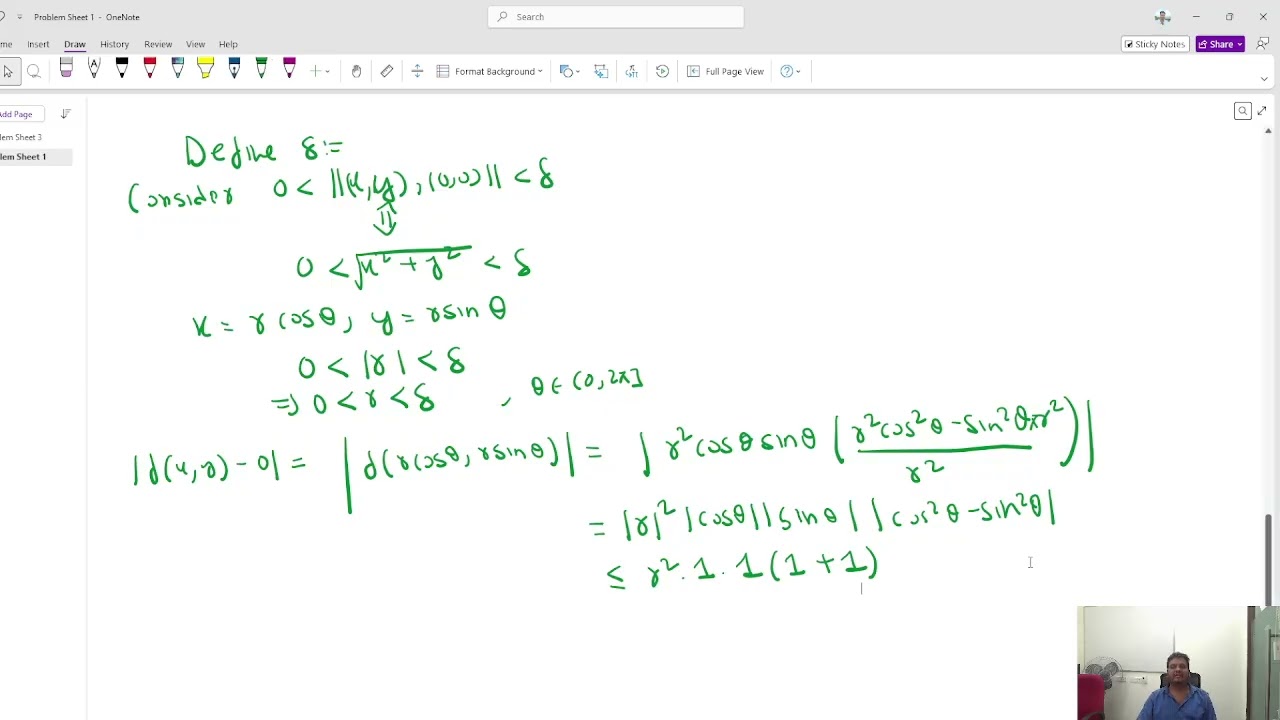 Problem Sheet 1 - OneNote
Search
me Insert Draw History Review View Help
Sticky Notes Share
Format Background Full Page View
Add Page
lem Sheet 3
lem Sheet 1
Define δ:=
Consider 0 < ||(x,y), (0,0)|| < δ
⇕
0 < √(x² + y²) < δ
x = r cosθ, y = r sin θ
0 < |r| < δ
⇒ 0 < r < δ , θ ∈ (0, 2π]
|f(x,y) - 0| = |f(r cosθ, r sinθ)| = | r² cosθ sinθ ( (r² cos² θ - sin² θ × r²) / r² ) |
= |r|² |cosθ| |sinθ| |cos² θ - sin² θ|
≤ r² . 1 . 1 (1 + 1)